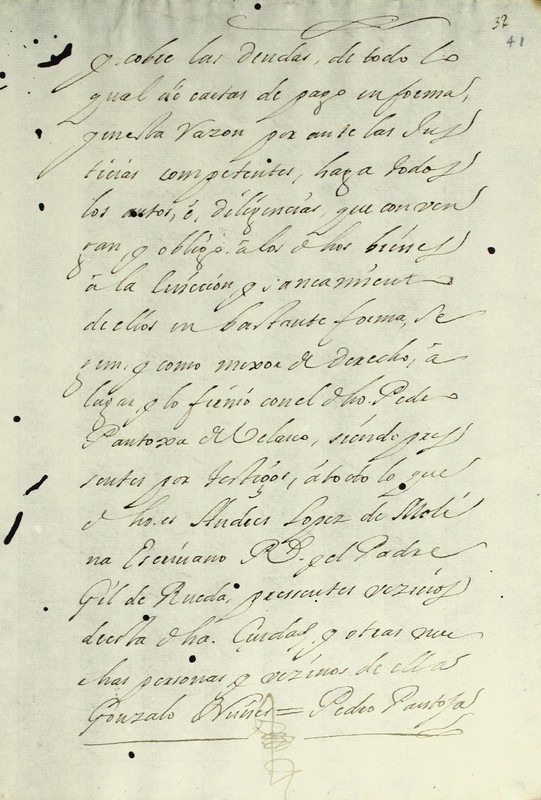 37
41
y cobre las deudas, de todo lo
qual dè cartas de pago en forma,
y en esta razon por ante las Jus
ticias competentes, haga todos
los autos, ò, diligencias, que conven
gan, y obligò à los dhos bienes
à la evicción y saneamiento
de ellos en bastante forma, se
gun, y como mexor de derecho, à
lugar, y lo firmó con el dho. Pedro
Pantoxa de Velasco, siendo pres
sentes por testigos, à todo lo que
dho. es Andres Lopez de Moli
na Escriuano Pco. y el Padre
Gil de Rueda, pressentes vezinos
de esta dha. Ciudad, y otras mu
chas personas y vezinos de ella
Gonzalo Nuñes = Pedro Pantoja